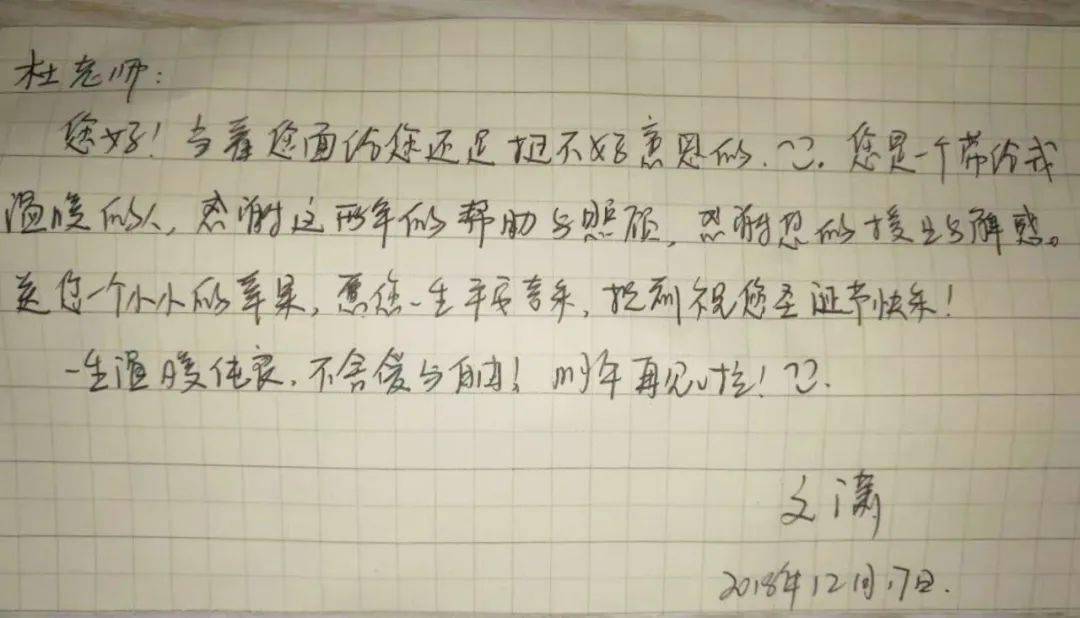 杜老师:
您好!当着您面给您还是挺不好意思的.您是一个带给我
温暖的人,感谢这两年的帮助与照顾,感谢您的接生与解惑。
送您一个小小的苹果,愿您一生平安喜乐,提前祝您圣诞节快乐!
一生温暖纯良,不舍爱与自由!明年再见啦!
文潇
2018年12月17日.